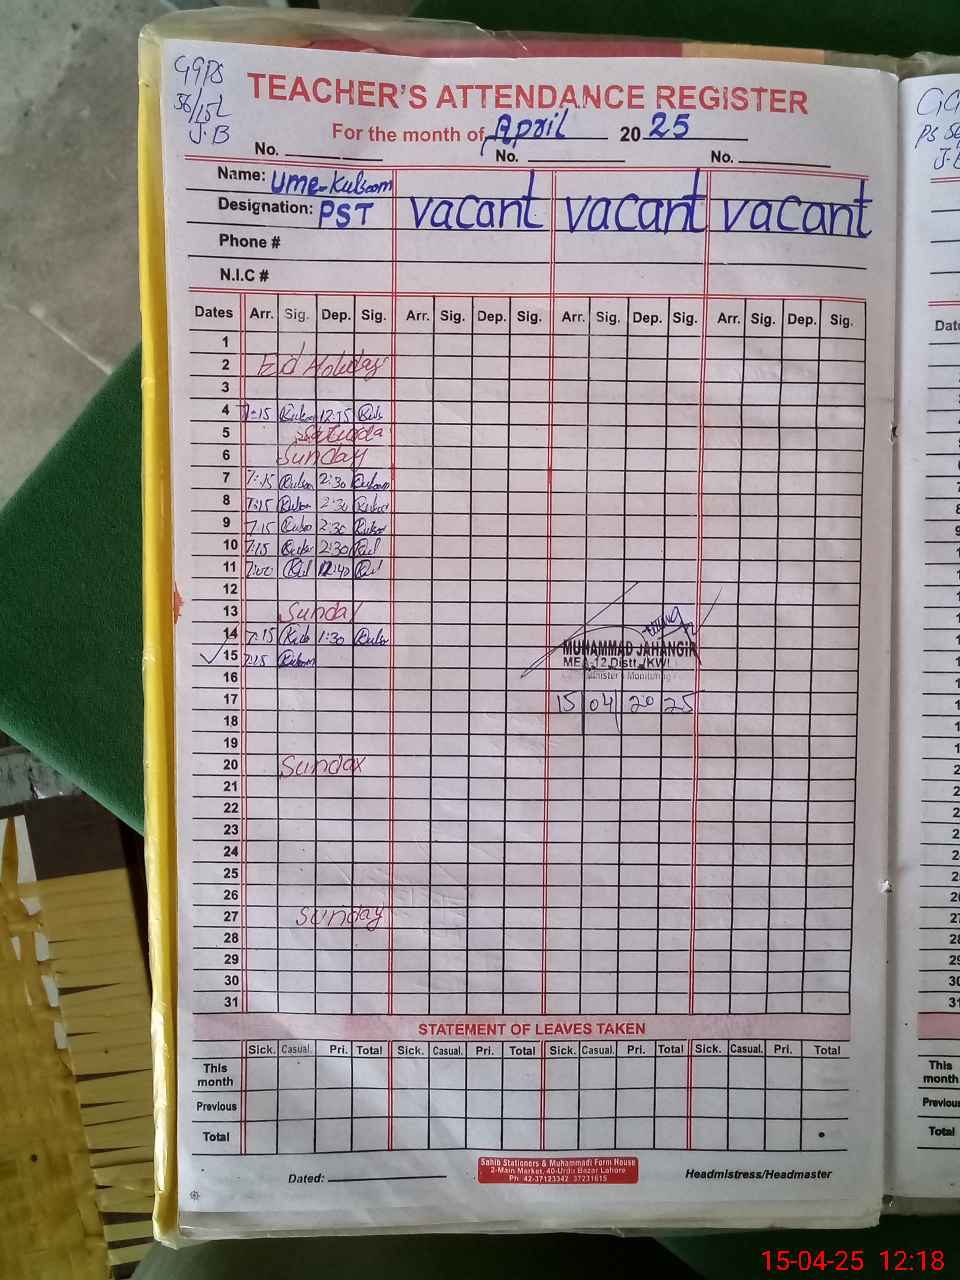 GGPS
56/15L
J.B
TEACHER'S ATTENDANCE REGISTER
For the month of April 2025
No. No. No.
Name: Ume-Kulsoom
Designation: PST vacant vacant vacant
Phone #
N.I.C #
Dates Arr. Sig. Dep. Sig. Arr. Sig. Dep. Sig. Arr. Sig. Dep. Sig. Arr. Sig. Dep. Sig.
1
2 Eid Holiday
3
4 7:15 12:15
5 Saturda
6 Sunday
7 7:15 2:30
8 7:15 2:30
9 7:15 2:30
10 7:15 2:30
11 7:00 12:40
12
13 Sunday
14 7:15 1:30
MUHAMMAD JAHANGIR
15 7:15
MEA-12 Distt. KWL
16
17 15 04 20 25
18
19
20 Sunday
21
22
23
24
25
26
27 Sunday
28
29
30
31
STATEMENT OF LEAVES TAKEN
Sick. Casual. Pri. Total Sick. Casual. Pri. Total Sick. Casual. Pri. Total Sick. Casual. Pri. Total
This month
Previous
Total
Dated:
Sahib Stationers & Muhammadi Form House
2-Main Market, 40-Urdu Bazar Lahore
Ph: 42-37123342 37231615
Headmistress/Headmaster
15-04-25 12:18